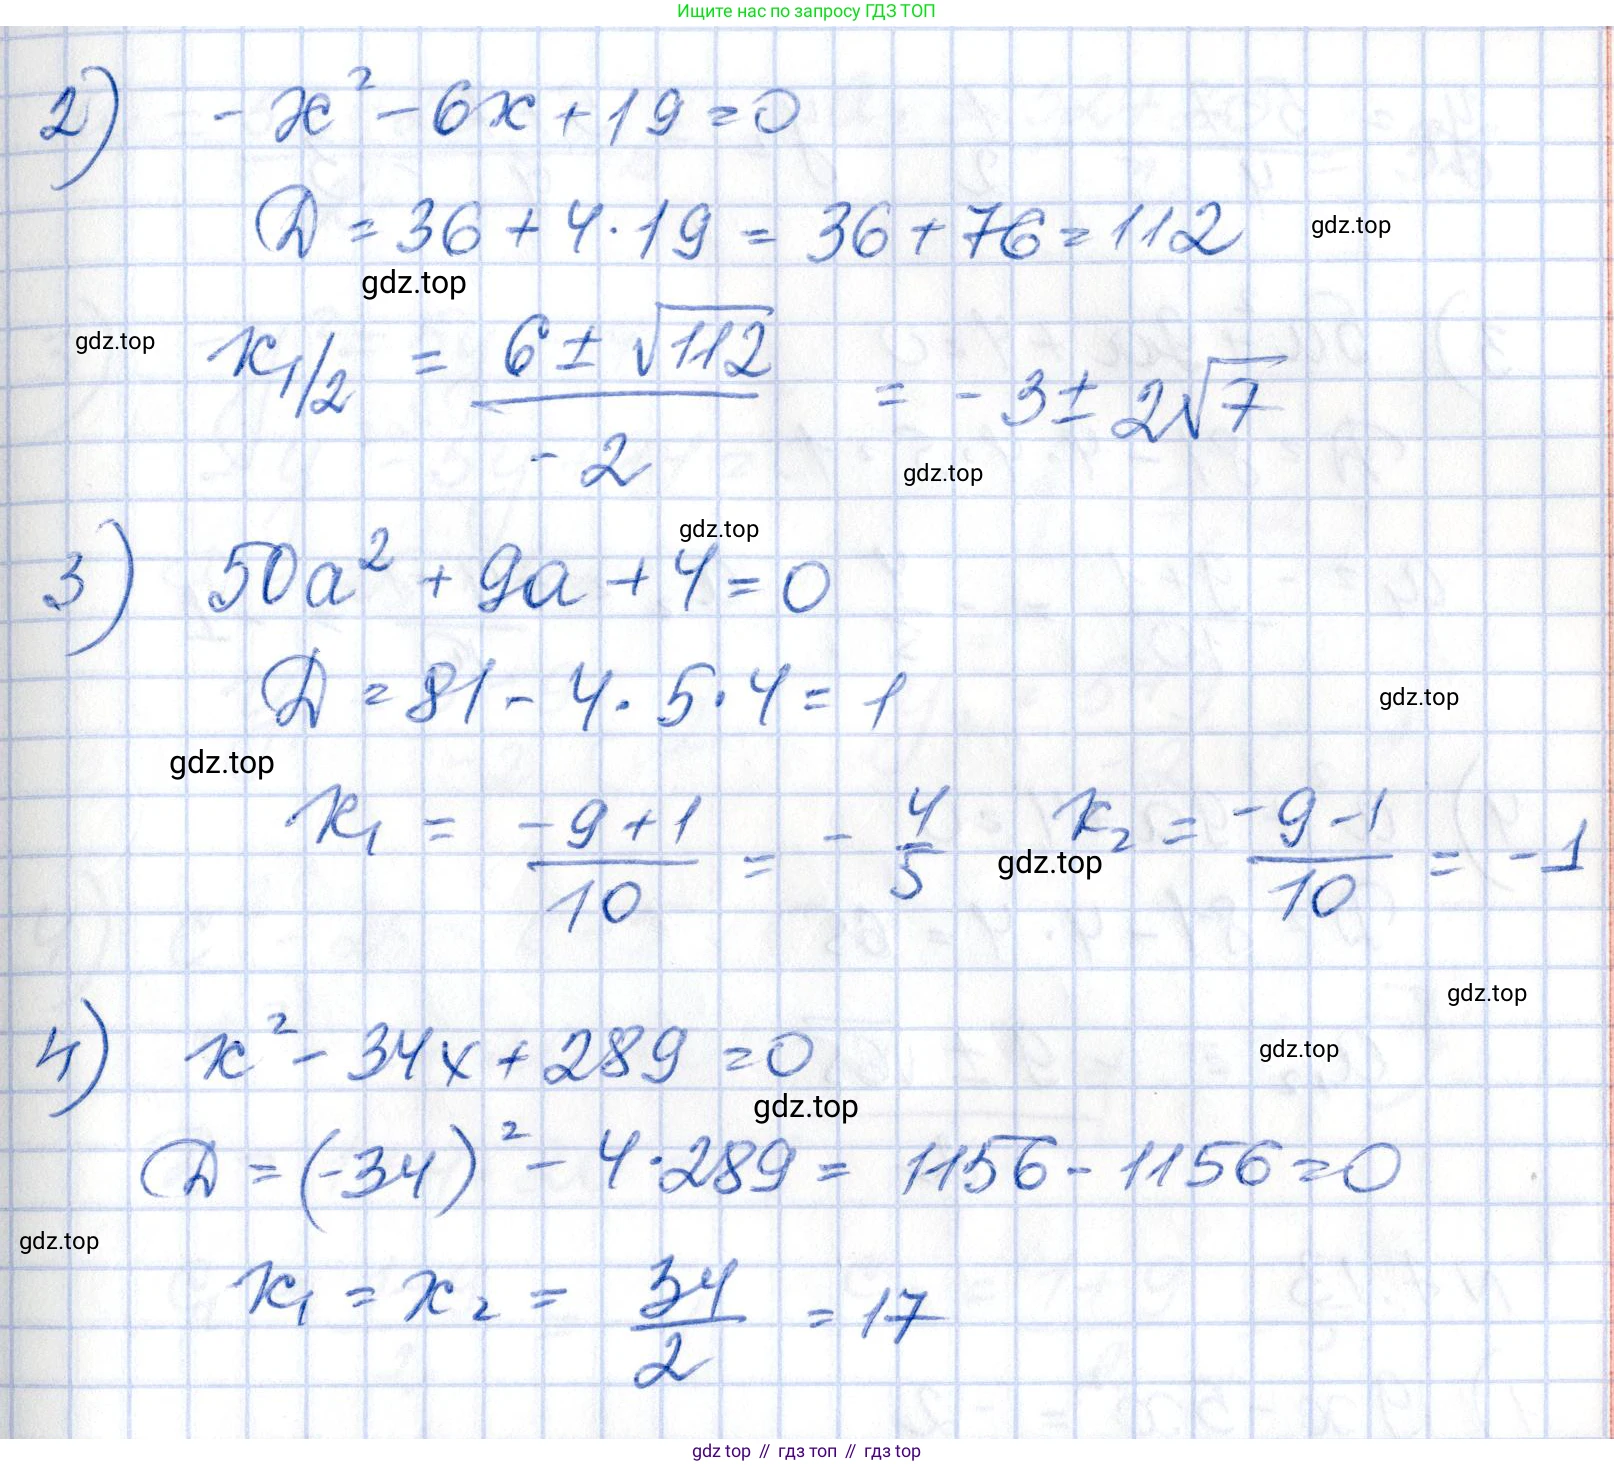 Ищите нас по запросу ГДЗ ТОП
2) -x² - 6x + 19 = 0
D = 36 + 4 · 19 = 36 + 76 = 112
gdz.top
gdz.top
gdz.top
x₁/₂ = (6 ± √112)/(-2) = -3 ± 2√7
gdz.top
gdz.top
3) 50a² + 9a + 4 = 0
D = 81 - 4 · 5 · 4 = 1
gdz.top
gdz.top
x₁ = (-9 + 1)/10 = -4/5 x₂ = (-9 - 1)/10 = -1
gdz.top
gdz.top
4) x² - 34x + 289 = 0
gdz.top
gdz.top
D = (-34)² - 4 · 289 = 1156 - 1156 = 0
gdz.top
x₁ = x₂ = 34/2 = 17
gdz top // гдз топ // гдз top